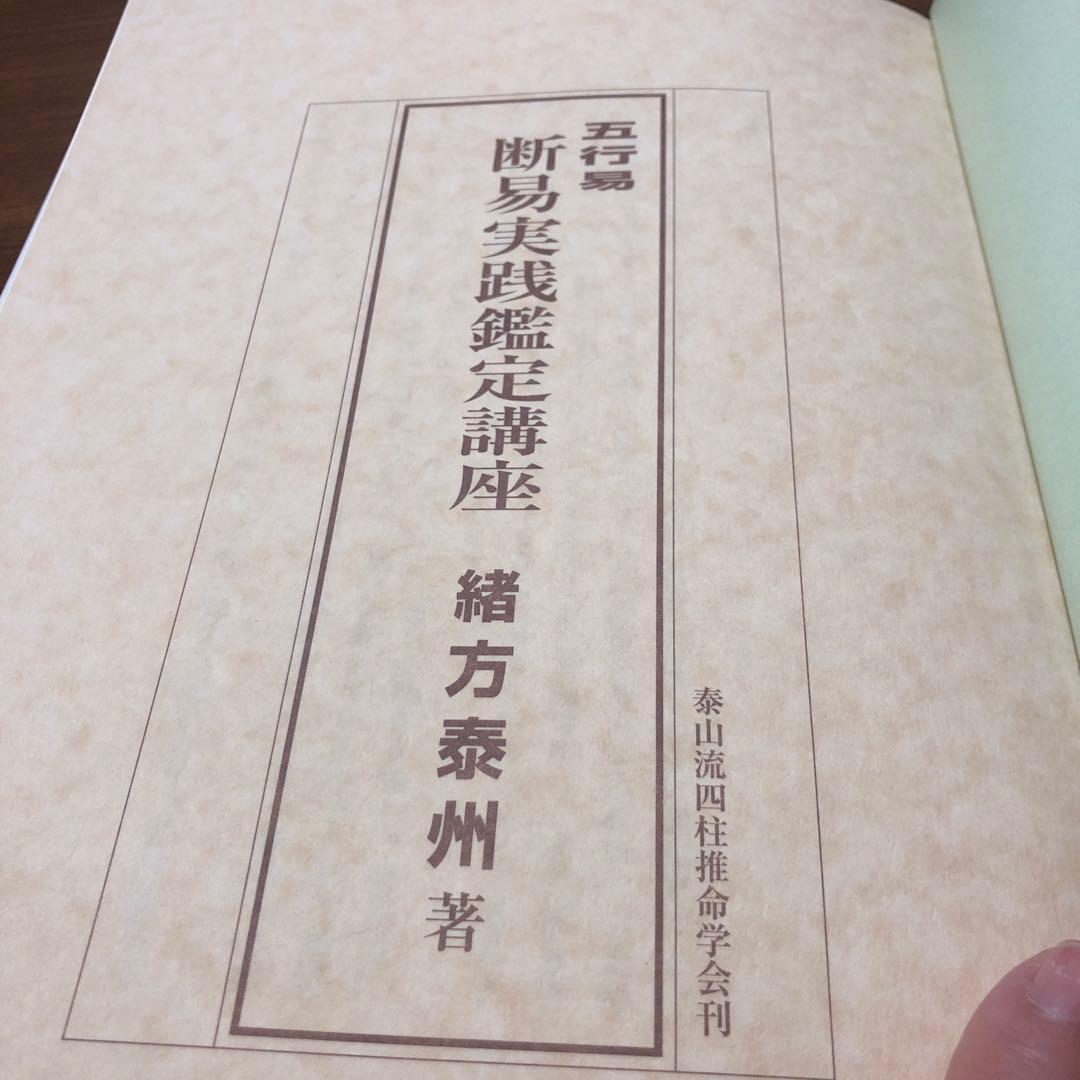 五行易
断易実践鑑定講座 緒方泰州著
泰山流四柱推命学会刊